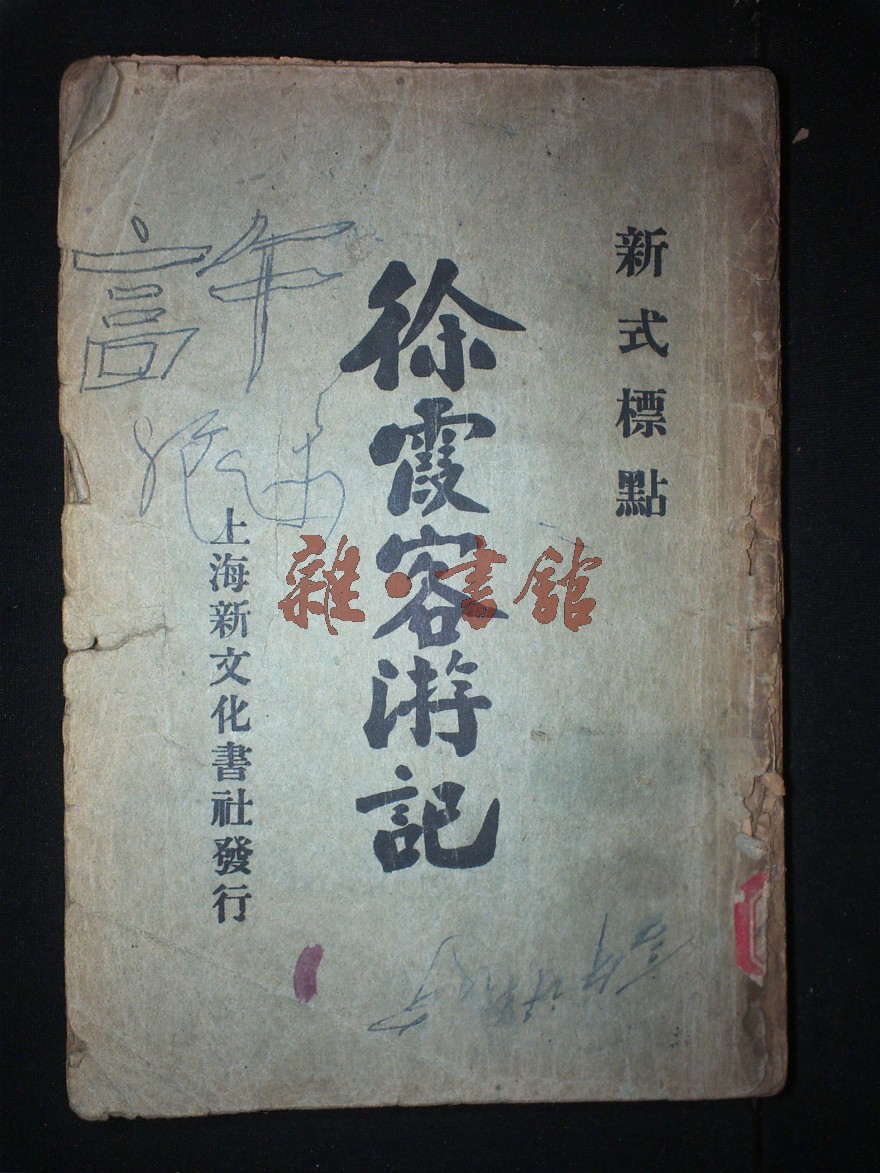 新式標點
徐霞客游記
上海新文化書社發行
雜·書館
許